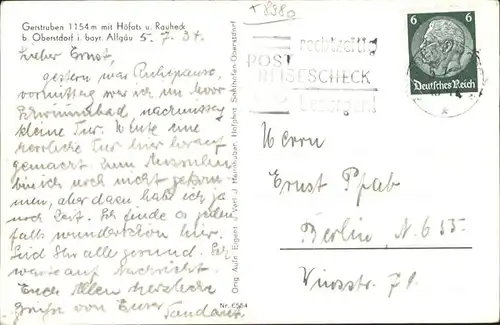 Gerstruben 1154 m mit Höfats u. Rauheck
b. Oberstdorf i. bayr. Allgäu
5. 7. 34.
Lieber Ernst,
gestern war Ruhepause,
vormittag war ich im
Schwimmbad, nachmittag
kleine Tur. Heute eine
herrliche Tur hier herauf
gemacht. Zum
bin ich noch nicht gekom-
men, aber dazu habe ich ja
noch Zeit. Ich finde es jeden
falls wunderschön hier.
Seid Ihr alle gesund. Ich
warte auf Nachricht.
Euch Allen herzliche
Grüße von Eurer
Orig. Aufn. Eigent. u. Verl. J. Heimhuber, Hofphot. Sonthofen-Oberstdorf
Nr. 6564
rechtzeitig
POST
REISESCHECK
besorgen!
6 6
Deutsches Reich
Herrn
Ernst Pfab
Berlin, N. 655.